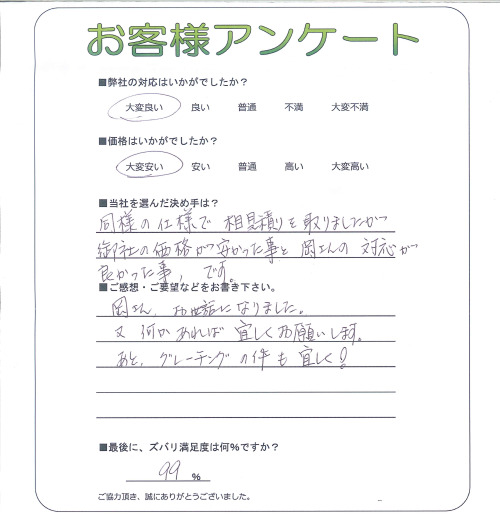 お客様アンケート
■弊社の対応はいかがでしたか？
大変良い 良い 普通 不満 大変不満
■価格はいかがでしたか？
大変安い 安い 普通 高い 大変高い
■当社を選んだ決め手は？
同様の仕様で 相見積りを取りましたが
御社の価格が安かった事と 岡さんの 対応が
良かった事, です。
■ご感想・ご要望などをお書き下さい。
岡さん, お世話になりました。
又 何かあれば 宜しくお願いします。
あと, グレーチングの件も 宜しく!
■最後に、ズバリ満足度は何%ですか？
99 %
ご協力頂き、誠にありがとうございました。